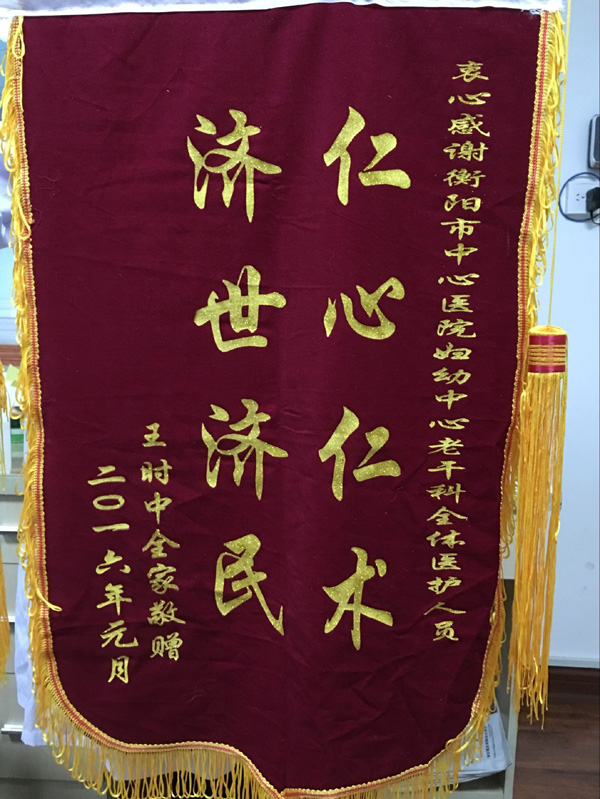 衷心感谢衡阳市中心医院妇幼中心老干科全体医护人员
仁心仁术
济世济民
王时中全家敬赠
二〇一六年元月